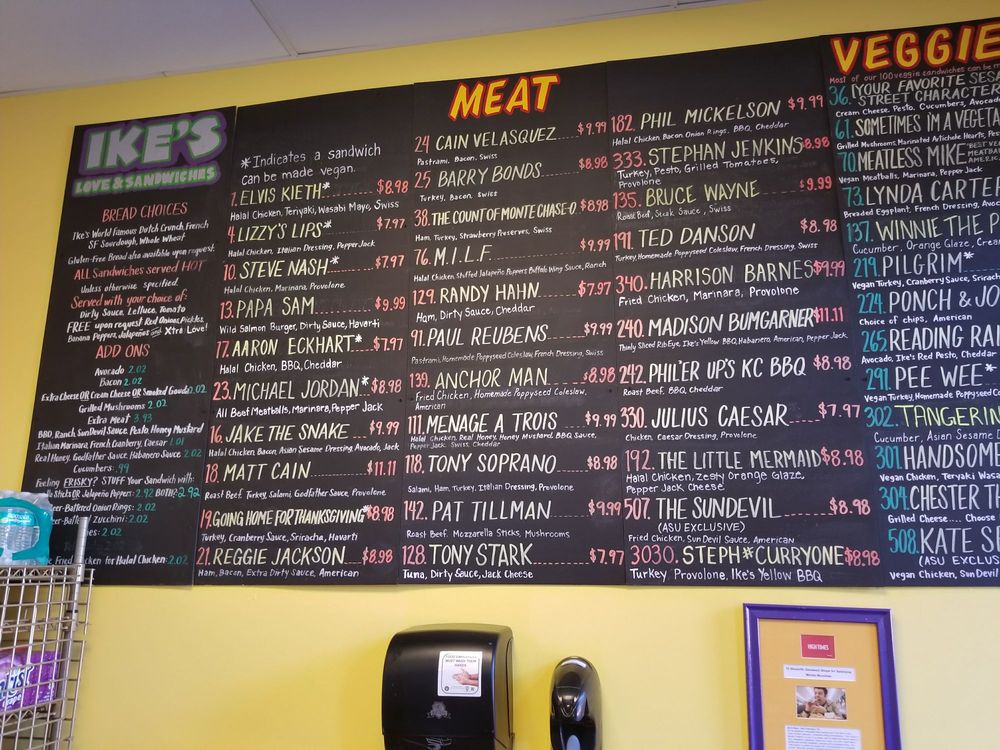 IKE'S
LOVE & SANDWICHES
BREAD CHOICES
Ike's World Famous Dutch Crunch, French
SF Sourdough, Whole Wheat
Gluten-Free Bread also available upon request
ALL Sandwiches served HOT
Unless otherwise specified.
Served with your choice of:
Dirty Sauce, Lettuce, Tomato
FREE upon request Red Onions, Pickles,
Banana Peppers, Jalapeños and Xtra Love!
ADD ONS
Avocado 2.02
Bacon 2.02
Extra Cheese OR Cream Cheese OR Smoked Gouda 2.02
Grilled Mushrooms 2.02
Extra Meat 3.93
BBQ, Ranch, SunDevil Sauce, Pesto, Honey Mustard
Italian, Marinara, French, Cranberry, Caesar 1.01
Real Honey, Godfather Sauce, Habanero Sauce 2.02
Cucumbers: .99
Feeling FRISKY? STUFF Your Sandwich with:
Sticks OR Jalapeño Popper: 2.92 BOTH? 2.92
Beer-Battered Onion Rings: 2.02
Battered Zucchini: 2.02
2.02
Fried Chicken for Halal Chicken: 2.02
*Indicates a sandwich
can be made vegan.
1. ELVIS KIETH* $8.98
Halal Chicken, Teriyaki, Wasabi Mayo, Swiss
4. LIZZY'S LIPS* $7.97
Halal Chicken, Italian Dressing, PepperJack
10. STEVE NASH* $7.97
Halal Chicken, Marinara, Provolone
13. PAPA SAM $9.99
Wild Salmon Burger, Dirty Sauce, Havarti
17. AARON ECKHART* $7.97
Halal Chicken, BBQ, Cheddar
23. MICHAEL JORDAN* $8.98
All Beef Meatballs, Marinara, Pepper Jack
16. JAKE THE SNAKE $9.99
Halal Chicken, Bacon, Asian Sesame Dressing, Avocado, Jack
18. MATT CAIN $11.11
Roast Beef, Turkey, Salami, Godfather Sauce, Provolone
19. GOING HOME FOR THANKSGIVING* $8.98
Turkey, Cranberry Sauce, Sriracha, Havarti
21. REGGIE JACKSON $8.98
Ham, Bacon, Extra Dirty Sauce, American
MEAT
24 CAIN VELASQUEZ $9.99
Pastrami, Bacon, Swiss
25 BARRY BONDS $8.98
Turkey, Bacon, Swiss
38. THE COUNT OF MONTE CHASE-O. $8.98
Ham, Turkey, Strawberry Preserves, Swiss
76. M.I.L.F. $9.99
Halal Chicken, Stuffed Jalapeño Poppers Buffalo Wing Sauce, Ranch
129. RANDY HAHN $7.97
Ham, Dirty Sauce, Cheddar
91. PAUL REUBENS $9.99
Pastrami, Homemade Poppyseed Coleslaw, French Dressing, Swiss
139. ANCHOR MAN $8.98
Fried Chicken, Homemade Poppyseed Coleslaw,
American
111. MENAGE A TROIS $9.99
Halal Chicken, Real Honey, Honey Mustard, BBQ Sauce,
Pepper Jack, Swiss, Cheddar
118. TONY SOPRANO $8.98
Salami, Ham, Turkey, Italian Dressing, Provolone
142. PAT TILLMAN $9.99
Roast Beef, Mozzarella Sticks, Mushrooms
128. TONY STARK $7.97
Tuna, Dirty Sauce, Jack Cheese
182. PHIL MICKELSON $9.99
Halal Chicken, Bacon, Onion Rings, BBQ, Cheddar
333. STEPHAN JENKINS $8.98
Turkey, Pesto, Grilled Tomatoes,
Provolone
135. BRUCE WAYNE $9.99
Roast Beef, Steak Sauce, Swiss
191. TED DANSON $8.98
Turkey, Homemade Poppyseed Coleslaw, French Dressing, Swiss
340. HARRISON BARNES $9.99
Fried Chicken, Marinara, Provolone
240. MADISON BUMGARNER $11.11
Thinly Sliced RibEye, Ike's Yellow BBQ, Habanero, American, Pepper Jack
242. PHIL'ER UP'S KC BBQ $8.98
Roast Beef, BBQ, Cheddar
330. JULIUS CAESAR $7.97
Chicken, Caesar Dressing, Provolone
192. THE LITTLE MERMAID $8.98
Halal Chicken, Zesty Orange Glaze,
Pepper Jack Cheese
507. THE SUNDEVIL $8.98
(ASU EXCLUSIVE)
Fried Chicken, Sun Devil Sauce, American
3030. STEPH*CURRYONE $8.98
Turkey, Provolone, Ike's Yellow BBQ
VEGGIE
Most of our 100 veggie sandwiches can be m
36. (YOUR FAVORITE SES
STREET CHARACTER
Cream Cheese, Pesto, Cucumbers, Avocad
61. SOMETIMES I'M A VEGETA
Grilled Mushrooms, Marinated Artichoke Hearts, Pe
70. MEATLESS MIKE
Vegan Meatballs, Marinara, Pepper Jack
73. LYNDA CARTE
Breaded Eggplant, French Dressing, Avo
137. WINNIE THE P
Cucumber, Orange Glaze, Crea
219. PILGRIM*
Vegan Turkey, Cranberry Sauce, Srirach
224. PONCH & JO
Choice of chips, American
265. READING RAI
Avocado, Ike's Red Pesto, Cheddar
291. PEE WEE*
Vegan Turkey, Homemade Poppyseed C
302. TANGERIN
Cucumber, Asian Sesame D
301. HANDSOME
Vegan Chicken, Teriyaki Wasa
304. CHESTER T
Grilled Cheese.... Choose
508. KATE SE
(ASU EXCLUS
Vegan Chicken, Sun Devi
HIGH TIMES